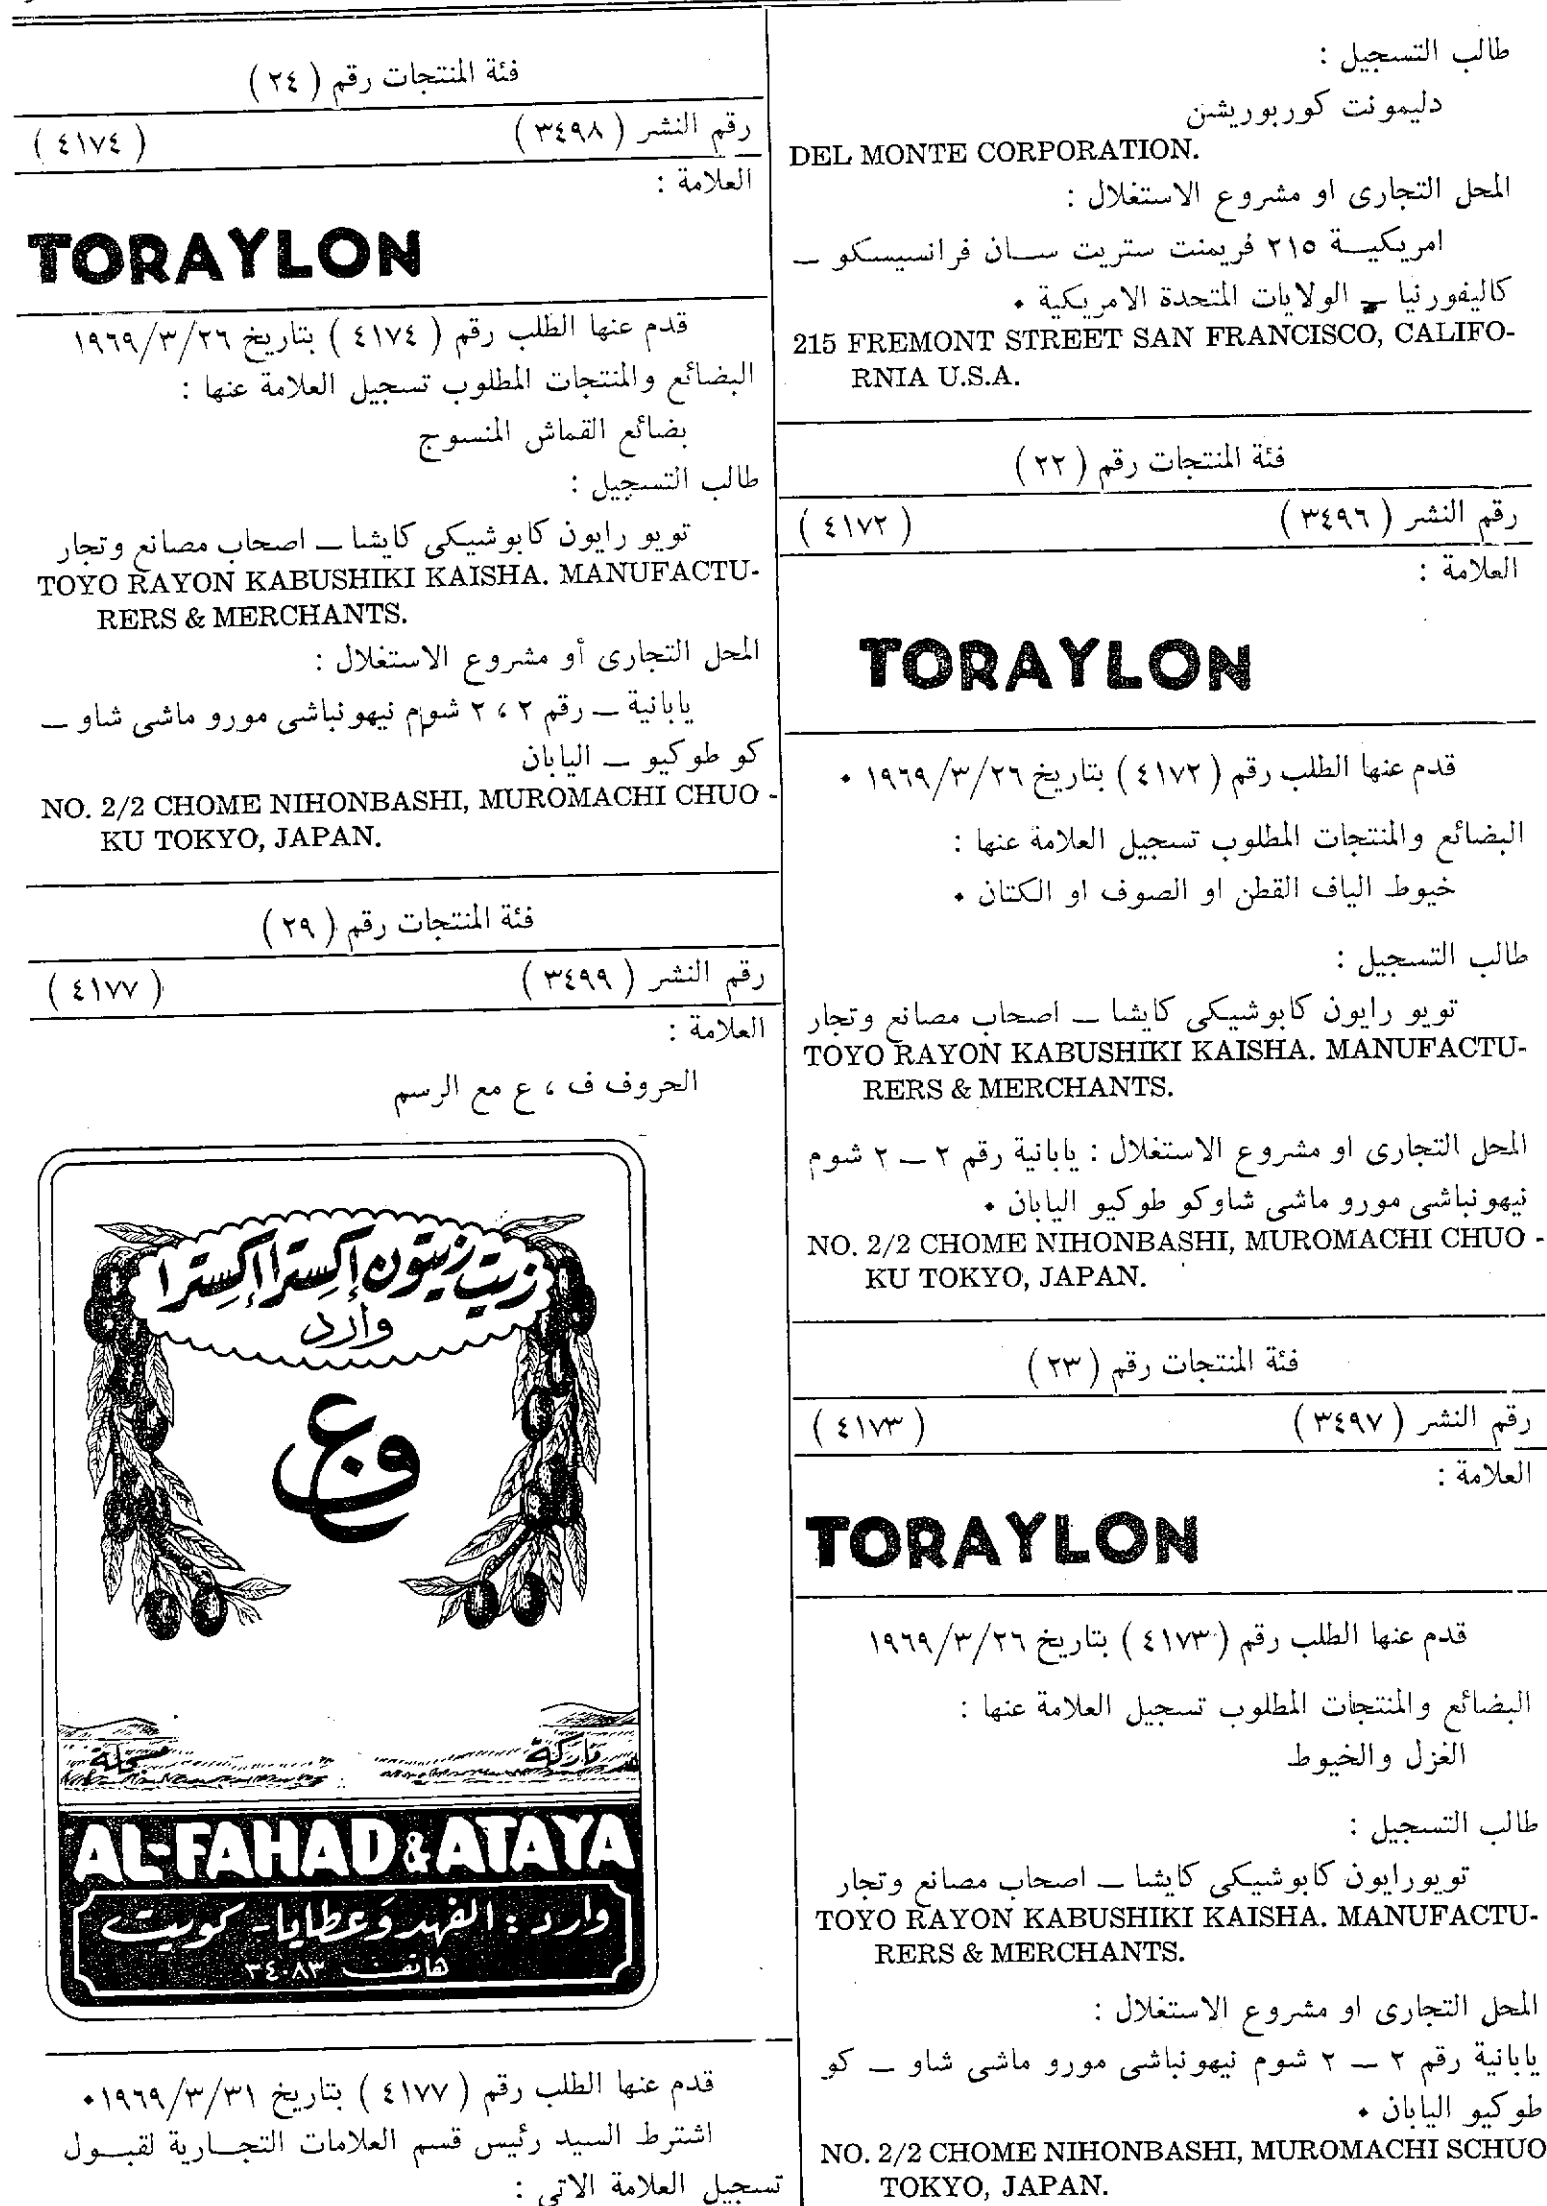 طالب التسجيل :
دليمونت كوربوريشن
DEL MONTE CORPORATION.
المحل التجارى او مشروع الاستغلال :
امريكيـــة ٢١٥ فريمنت ستريت ســان فرانسيسكو ــ
كاليفورنيا ــ الولايات المتحدة الامريكية ٠
215 FREMONT STREET SAN FRANCISCO, CALIFO-
RNIA U.S.A.
فئة المنتجات رقم ( ٢٢ )
رقم النشر ( ٣٤٩٦ ) ( ٤١٧٢ )
العلامة :
TORAYLON
قدم عنها الطلب رقم ( ٤١٧٢ ) بتاريخ ١٩٦٩/٣/٢٦ ٠
البضائع والمنتجات المطلوب تسجيل العلامة عنها :
خيوط الياف القطن او الصوف او الكتان ٠
طالب التسجيل :
تويو رايون كابوشيكى كايشا ــ اصحاب مصانع وتجار
TOYO RAYON KABUSHIKI KAISHA. MANUFACTU-
RERS & MERCHANTS.
المحل التجارى او مشروع الاستغلال : يابانية رقم ٢ ــ ٢ شوم
نيهونباشى مورو ماشى شاوكو طوكيو اليابان ٠
NO. 2/2 CHOME NIHONBASHI, MUROMACHI CHUO -
KU TOKYO, JAPAN.
فئة المنتجات رقم ( ٢٣ )
رقم النشر ( ٣٤٩٧ ) ( ٤١٧٣ )
العلامة :
TORAYLON
قدم عنها الطلب رقم ( ٤١٧٣ ) بتاريخ ١٩٦٩/٣/٢٦
البضائع والمنتجات المطلوب تسجيل العلامة عنها :
الغزل والخيوط
طالب التسجيل :
تويورايون كابوشيكى كايشا ــ اصحاب مصانع وتجار
TOYO RAYON KABUSHIKI KAISHA. MANUFACTU-
RERS & MERCHANTS.
المحل التجارى او مشروع الاستغلال :
يابانية رقم ٢ ــ ٢ شوم نيهونباشى مورو ماشى شاو ــ كو
طوكيو اليابان ٠
NO. 2/2 CHOME NIHONBASHI, MUROMACHI SCHUO
TOKYO, JAPAN.
فئة المنتجات رقم ( ٢٤ )
رقم النشر ( ٣٤٩٨ ) ( ٤١٧٤ )
العلامة :
TORAYLON
قدم عنها الطلب رقم ( ٤١٧٤ ) بتاريخ ١٩٦٩/٣/٢٦
البضائع والمنتجات المطلوب تسجيل العلامة عنها :
بضائع القماش المنسوج
طالب التسجيل :
تويو رايون كابوشيكى كايشا ــ اصحاب مصانع وتجار
TOYO RAYON KABUSHIKI KAISHA. MANUFACTU-
RERS & MERCHANTS.
المحل التجارى أو مشروع الاستغلال :
يابانية ــ رقم ٢ ، ٢ شوم نيهونباشى مورو ماشى شاو ــ
كو طوكيو ــ اليابان
NO. 2/2 CHOME NIHONBASHI, MUROMACHI CHUO -
KU TOKYO, JAPAN.
فئة المنتجات رقم ( ٢٩ )
رقم النشر ( ٣٤٩٩ ) ( ٤١٧٧ )
العلامة :
الحروف ف ، ع مع الرسم
زيت زيتون إكسترا إكسترا
وارد
ف ع
ماركة مسجلة
AL-FAHAD & ATAYA
وارد : الفهد وَعطايا - كويت
هاتف ٣٤٠٨٣
قدم عنها الطلب رقم ( ٤١٧٧ ) بتاريخ ١٩٦٩/٣/٣١٠
اشترط السيد رئيس قسم العلامات التجــارية لقبــول
تسجيل العلامة الاتى :